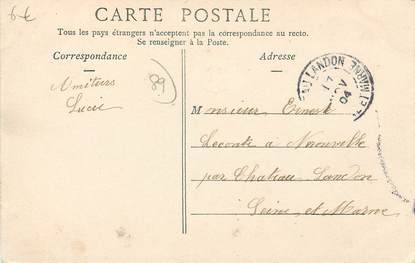 6€
CARTE POSTALE
Tous les pays étrangers n'acceptent pas la correspondance au recto.
Se renseigner à la Poste.
Correspondance
Adresse
89
Amitiés
Lucie
LANDON
17
04
Monsieur Ernest
Lecomte à
par Chateau Landon
Seine et Marne